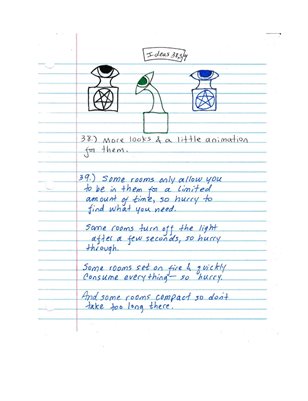 Ideas 38,39
38.) More looks & a little animation
for them.
39.) Some rooms only allow you
to be in them for a limited
amount of time, so hurry to
find what you need.
Some rooms turn off the light
after a few seconds, so hurry
through.
Some rooms set on fire & quickly
consume everything— so hurry.
And some rooms compact so don't
take too long there.